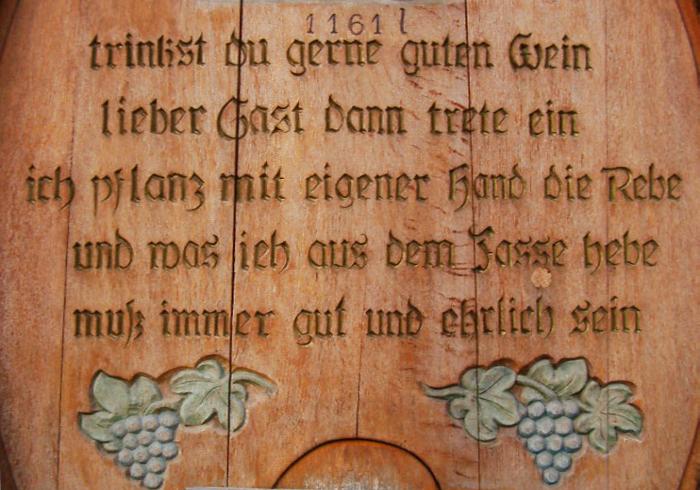 1161 l
trinkst du gerne guten Wein
lieber Gast dann trete ein
ich pflanz mit eigener Hand die Rebe
und was ich aus dem Fasse hebe
muß immer gut und ehrlich sein